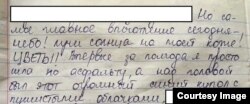 Но са-
мое главное впечатление сегодня-
небо! лучи солнца на моей коже!
ЦВЕТЫ!! Впервые за полгода я просто
шла по асфальту, а над головой
был этот огромный синий купол с
пушистыми облачками.
Courtesy Image